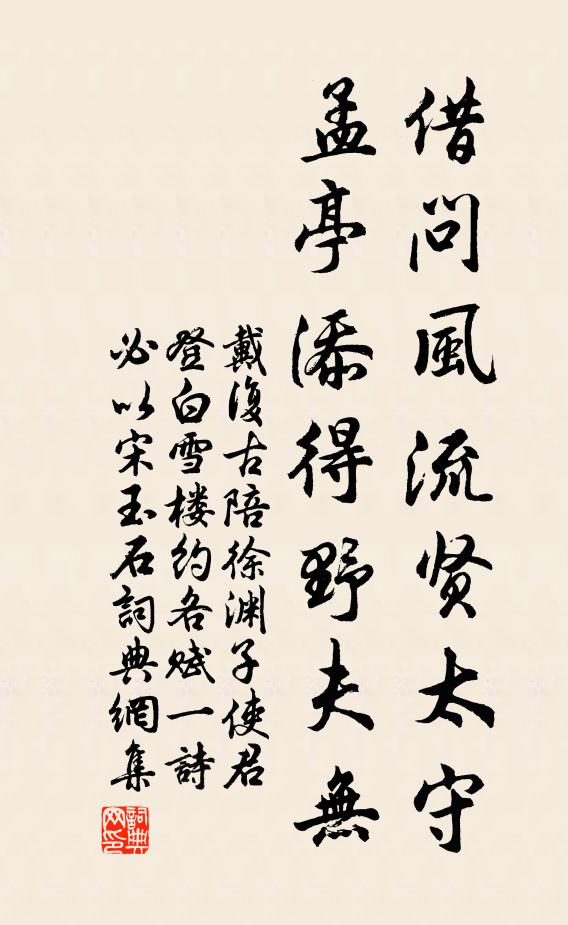 借问風流贤太守
孟亭添得野夫無
戴復古陪徐渊子使君
登白雪楼约各赋一詩
必以宋玉石詞典網集
詞典
网印